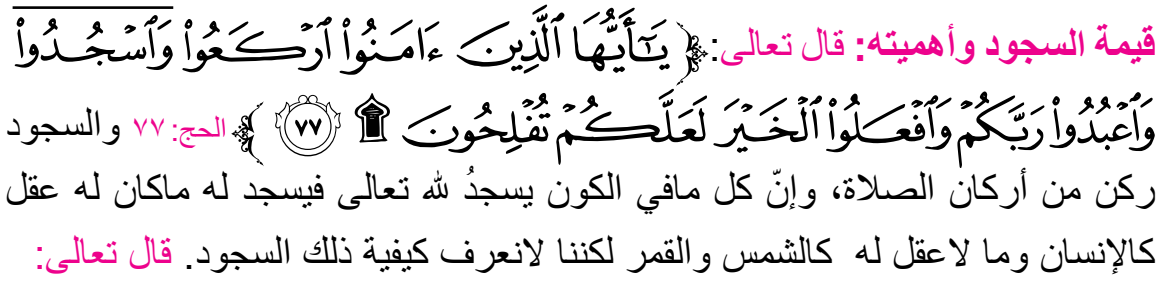 قيمة السجود وأهميته: قال تعالى: ﴿ يَٰٓأَيُّهَا ٱلَّذِينَ ءَامَنُواْ ٱرْكَعُواْ وَٱسْجُدُواْ
وَٱعْبُدُواْ رَبَّكُمْ وَٱفْعَلُواْ ٱلْخَيْرَ لَعَلَّكُمْ تُفْلِحُونَ ۩ ٧٧ ﴾ الحج: ٧٧ والسجود
ركن من أركان الصلاة، وإنّ كل مافي الكون يسجدُ لله تعالى فيسجد له ماكان له عقل
كالإنسان وما لاعقل له كالشمس والقمر لكننا لانعرف كيفية ذلك السجود. قال تعالى: